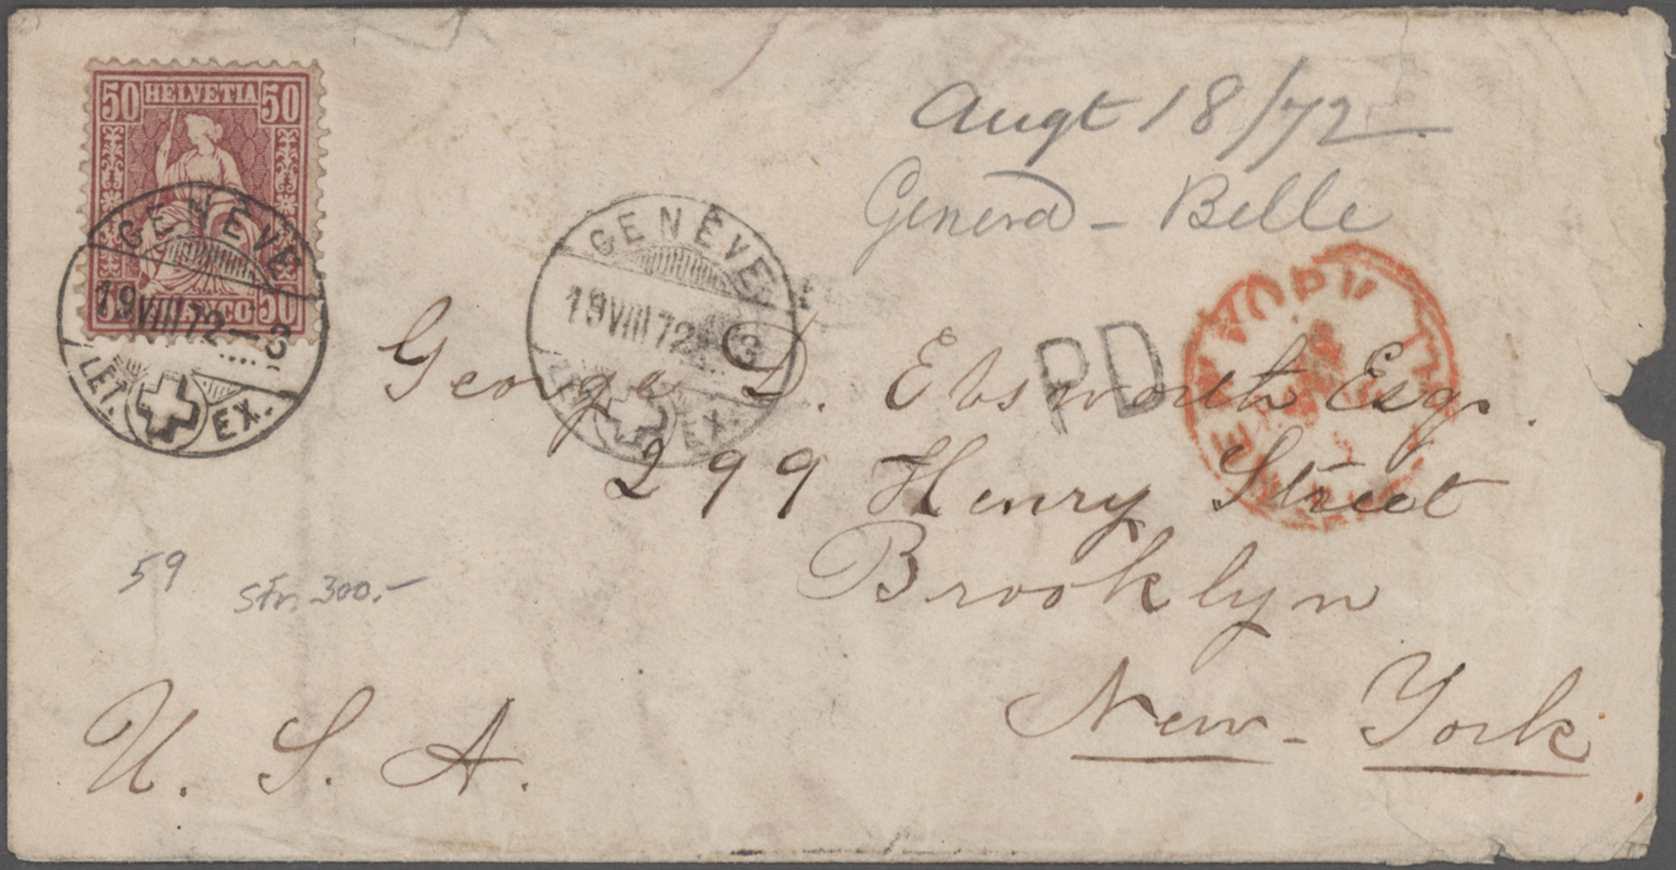 50 HELVETIA 50
FRANCO 50
GENÈVE
19 VIII 72–3
LET. EX.
GENÈVE
19 VIII 72 3
EX.
Augt 18/72
Geneva - Belle
PD
NEW YORK
George D. Ebsworth Esqr.
299 Henry Street
Brooklyn
New-York
U. S. A.
59
sfr. 300.-